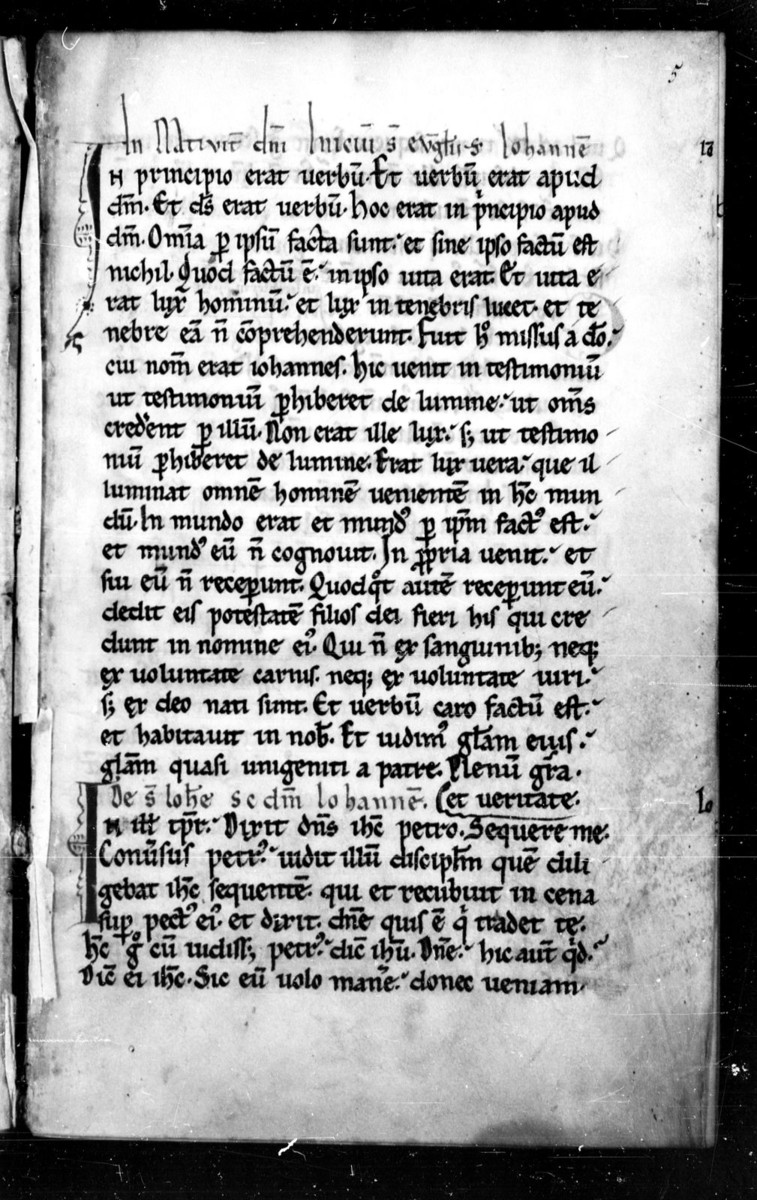 5
In Natiuit̄ dn̄i Iniciū s̄ eūglii s Iohannē
IN principio erat uerbū. Et uerbū erat apud
dm̄. Et ds̄ erat uerbū. hoc erat in pͥncipio apud
dm̄. Om̄ia ꝑ ipsū facta sunt. et sine ipso factū est
nichil. Quod factū ē. in ipso uita erat. Et uita e
rat lux hominū. et lux in tenebris lucet. et te
nebre eā n̄ cōprehenderunt. Fuit hō missus a dō.
cui nom̄ erat iohannes. hic uenit in testimoniū
ut testimoniū ꝑhiberet de lumine. ut om̄s
cred̄ent ꝑ illū. Non erat ille lux. s; ut testimo
niū ꝑhiberet de lumine. Erat lux uera. que il
luminat omnē hominē uenientē in hc̄ mun
dū. In mundo erat et mundꝰ ꝑ ip̄m factꝰ est.
et mundꝰ eū n̄ cognouit. In ꝓpria uenit. et
sui eū n̄ receꝑunt. Quodqͦt autē receꝑunt eū.
dedit eis potestatē filios dei fieri his qui cre
dunt in nomine eiꝰ. Qui n̄ ex sanguinib; neq;
ex uoluntate carnis. neq; ex uoluntate uiri.
s; ex deo nati sunt. Et uerbū caro factū est.
et habitauit in nob̄. Et uidimꝰ gl̄am eius.
gl̄am quasi unigeniti a patre. Plenū gr̄a.
De s̄ Ioh̄e scdm̄ Iohannē. et ueritate.
Io
IN ill̄ tp̄r. Dixit dn̄s ihc̄ petro. Sequere me.
Conūsus petrꝰ. uidit illū discipl̄m quē dili
gebat ihc̄ sequentē. qui et recubuit in cena
suꝑ pectꝰ eiꝰ. et dixit. dn̄e quis ē qͥ tradet te.
hc̄ gͦ cū uidiss; petrꝰ. dic̄ ihū. Dn̄e. hic aut̄ qͥd.
Dic̄ ei ihc̄. Sic eū uolo man̄e. donec ueniam.